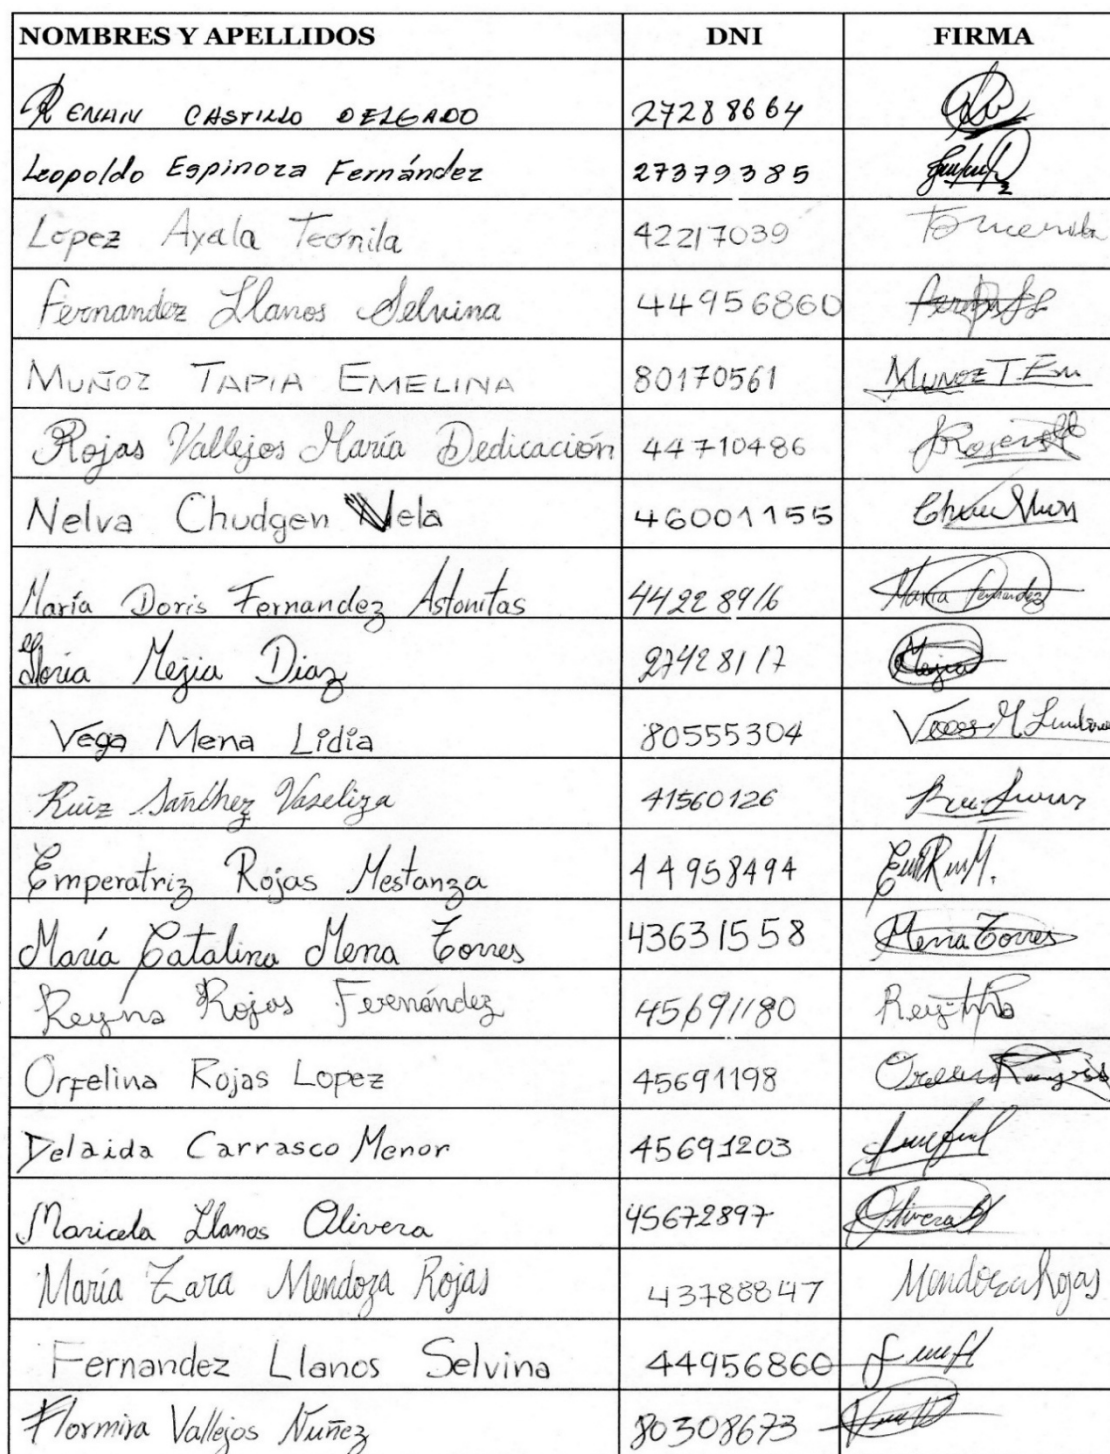 NOMBRES Y APELLIDOS DNI FIRMA
RENAN CASTILLO DELGADO 27288664
Leopoldo Espinoza Fernández 27379385
Lopez Ayala Teonila 42217039
Fernandez Llanos Selvina 44956860
MUÑOZ TAPIA EMELINA 80170561 MUNOZ T. Em
Rojas Vallejos María Dedicación 44710486
Nelva Chudgen Vela 46001155
María Doris Fernandez Astonitas 44228916 Maria Fernandez
Gloria Mejia Diaz 27428117 Mejia
Vega Mena Lidia 80555304
Ruiz Sanchez Vaseliza 41560126
Emperatriz Rojas Mestanza 44958494
María Catalina Mena Torres 43631558 Mena Torres
Reyna Rojas Fernández 45691180
Orfelina Rojas Lopez 45691198
Delaida Carrasco Menor 45691203
Maricela Llanos Olivera 45672897 Olivera
María Zara Mendoza Rojas 43788847 Mendoza Rojas
Fernandez Llanos Selvina 44956860
Flormira Vallejos Nuñez 80308673